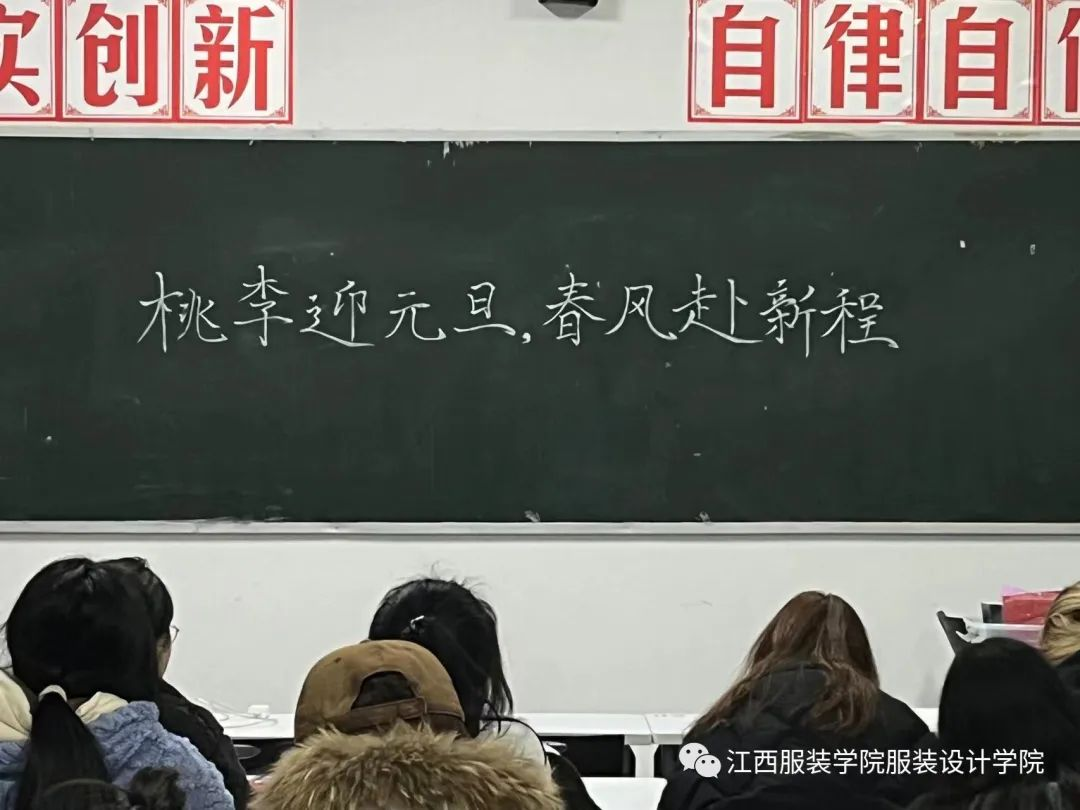 实创新
自律自信
桃李迎元旦,春风赴新程
江西服装学院服装设计学院